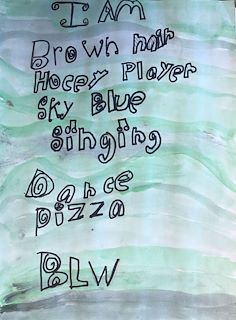 I AM
Brown hair
Hocey Player
Sky Blue
singing
Dance
pizza
BLW